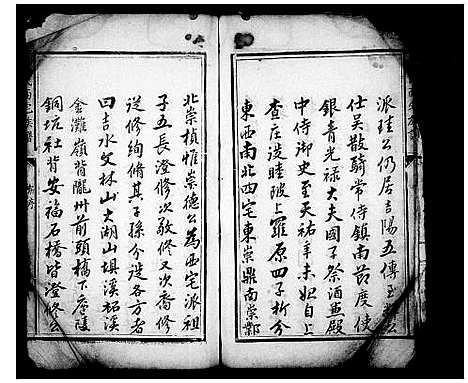 派珪公仍居吉陽五傳至
仕吳散騎常侍鎮南節度使
銀青光禄大夫國子祭酒無殿
中侍御史至天祐年末妲自上
查庄淡睦陂上羅原四子析分
東西南北四宅東崇鼎南崇酆
北崇楨惟崇德公為西宅派祖
子五長澄修次敬修又次喬修
逆修絢脩其子孫分徙各方者
曰吉水文林山大湖山垻溪柘溪
金灘嶺背隴州前頭橋下蔭陵
銅坑社背安福石橋皆澄修公